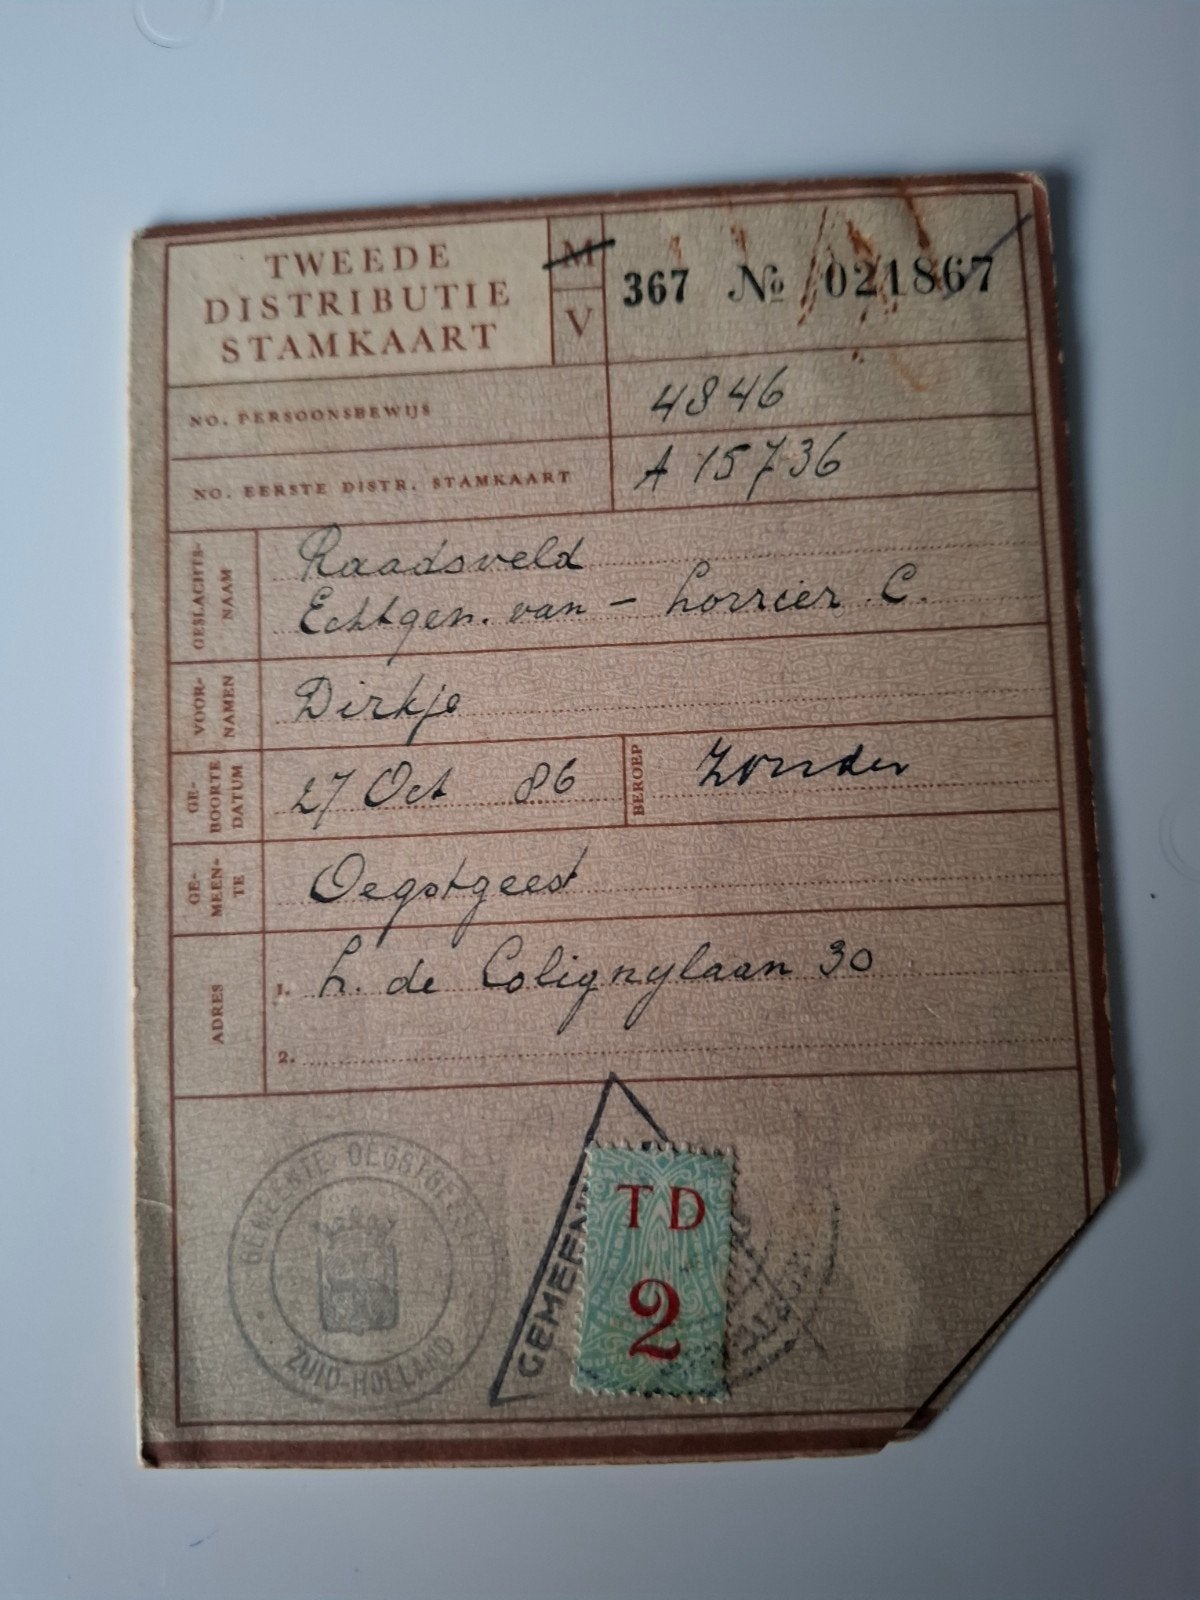 TWEEDE
DISTRIBUTIE
STAMKAART
M
V
367 No 021867
NO. PERSOONSBEWIJS 4846
NO. EERSTE DISTR. STAMKAART A 15736
GESLACHTS-
NAAM
Raadsveld
Echtgen. van - Lorrier C.
VOOR-
NAMEN
Dirkje
GE-
BOORTE
DATUM
27 Oct 86
BEROEP
Zonder
GE-
MEEN-
TE
Oegstgeest
ADRES
1. L. de Colignylaan 30
2.
GEMEENTE OEGSTGEEST
ZUID-HOLLAND
TD
2